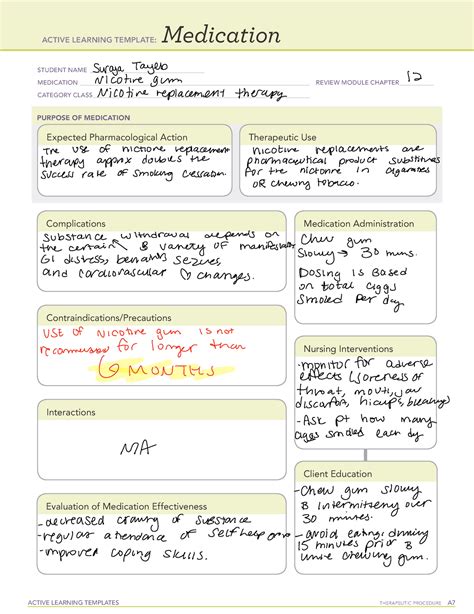 ACTIVE LEARNING TEMPLATE: Medication
STUDENT NAME Suraya Tayeb
MEDICATION Nicotine gum
REVIEW MODULE CHAPTER 12
CATEGORY CLASS Nicotine replacement therapy
PURPOSE OF MEDICATION
Expected Pharmacological Action
The use of nictione replacement
therapy approx doubles the
success rate of smoking cessation.
Therapeutic Use
Nicotine replacements are
pharmaceutical product substitutes
for the nicotine in cigarettes
OR chewing tobacco.
Complications
Substance withdrawal depends on
the certain & variety of manifestations
GI distress, seizures,
and cardiovascular changes.
Medication Administration
Chew gum
Slowly → 30 mins.
Dosing is Based
on total ciggs
smoked per day
Contraindications/Precautions
USE of Nicotine gum is not
recommended for longer than
6 MONTHS
Nursing Interventions
-monitor for adverse
effects (soreness of
throat, mouth, jaw
discomfort, hiccups,
-Ask pt how many
ciggs smoked each day
Interactions
NA
Client Education
-Chew gum slowly
& intermittently over
30 minutes.
-avoid eating/drinking
15 minutes prior &
while chewing gum.
Evaluation of Medication Effectiveness
-decreased craving of substance
-regular attendance of self help group
-improved coping skills.
ACTIVE LEARNING TEMPLATES
THERAPEUTIC PROCEDURE A7